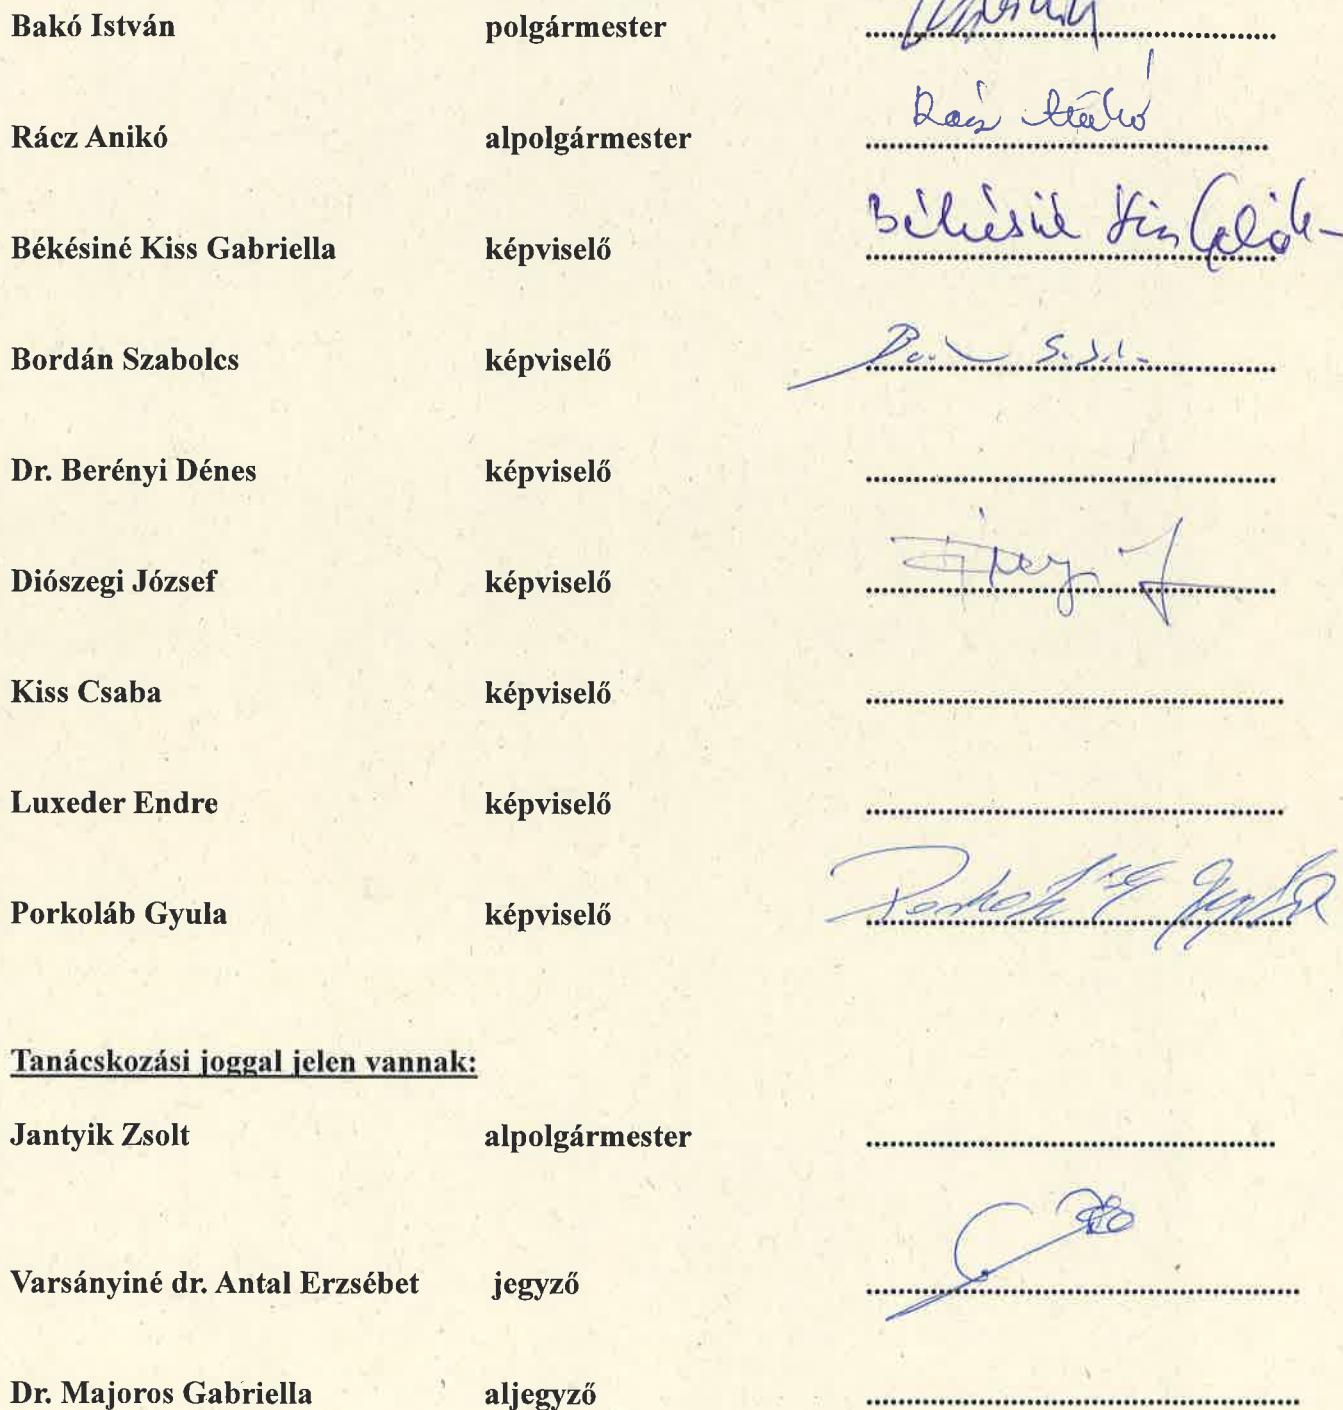 Bakó István polgármester
Rácz Anikó alpolgármester
Békésiné Kiss Gabriella képviselő
Bordán Szabolcs képviselő
Dr. Berényi Dénes képviselő
Diószegi József képviselő
Kiss Csaba képviselő
Luxeder Endre képviselő
Porkoláb Gyula képviselő
Tanácskozási joggal jelen vannak:
Jantyik Zsolt alpolgármester
Varsányiné dr. Antal Erzsébet jegyző
Dr. Majoros Gabriella aljegyző